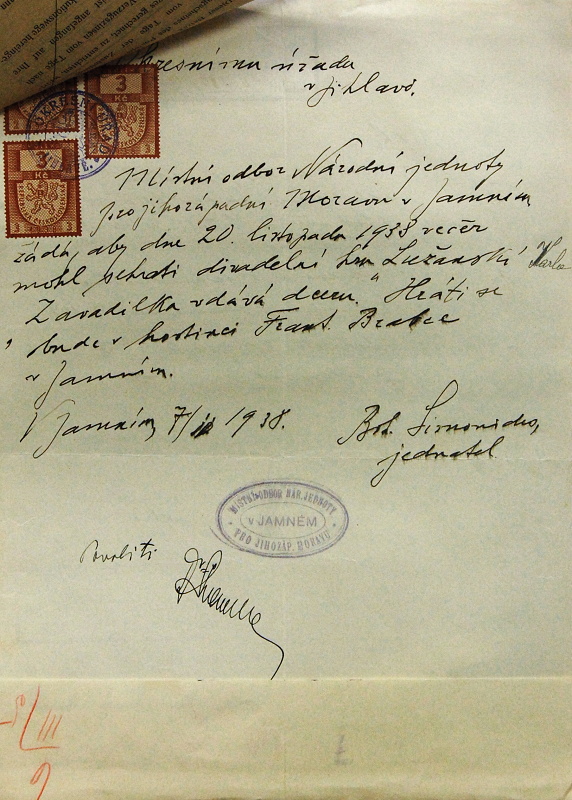 Okresnímu úřadu
v Jihlavě.
3
Kč
3
Kč
Místní odbor Národní jednoty
pro jihozápadní Moravu v Jamném
žádá, aby dne 20. listopadu 1938 večer
mohl sehrati divadelní hru Lužanský Karla
„Zavadilka vdává dceru." Hráti se
bude v hostinci Frant. Brabce
v Jamném.
V Jamném, 7/11 1938.
jednatel
MÍSTNÍ ODBOR NÁR. JEDNOTY
V JAMNÉM
PRO JIHOZÁP. MORAVU
Povoliti
III